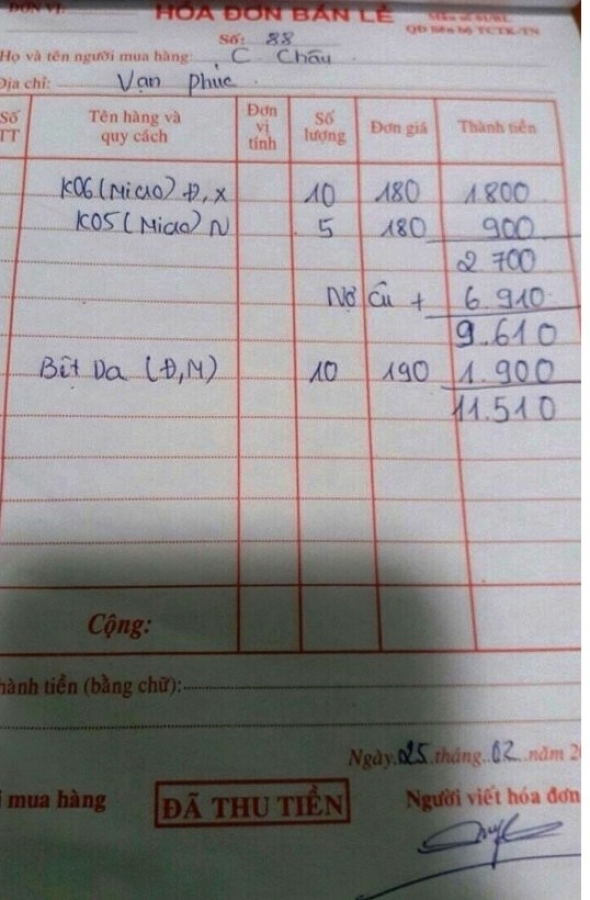 ĐƠN VỊ:
HÓA ĐƠN BÁN LẺ
QĐ liên bộ TCTK-TN
Số: 88
Họ và tên người mua hàng: C Châu
Địa chỉ: Vạn Phúc
Số TT Tên hàng và quy cách Đơn vị tính Số lượng Đơn giá Thành tiền
K06 (Micao) Đ, X 10 180 1800
K05 (Micao) N 5 180 900
2 700
Nợ Cũ + 6.910
9.610
Bệt Da (Đ,M) 10 190 1.900
11.510
Cộng:
hành tiền (bằng chữ):
Ngày 25 tháng 02 năm 2
i mua hàng ĐÃ THU TIỀN Người viết hóa đơn